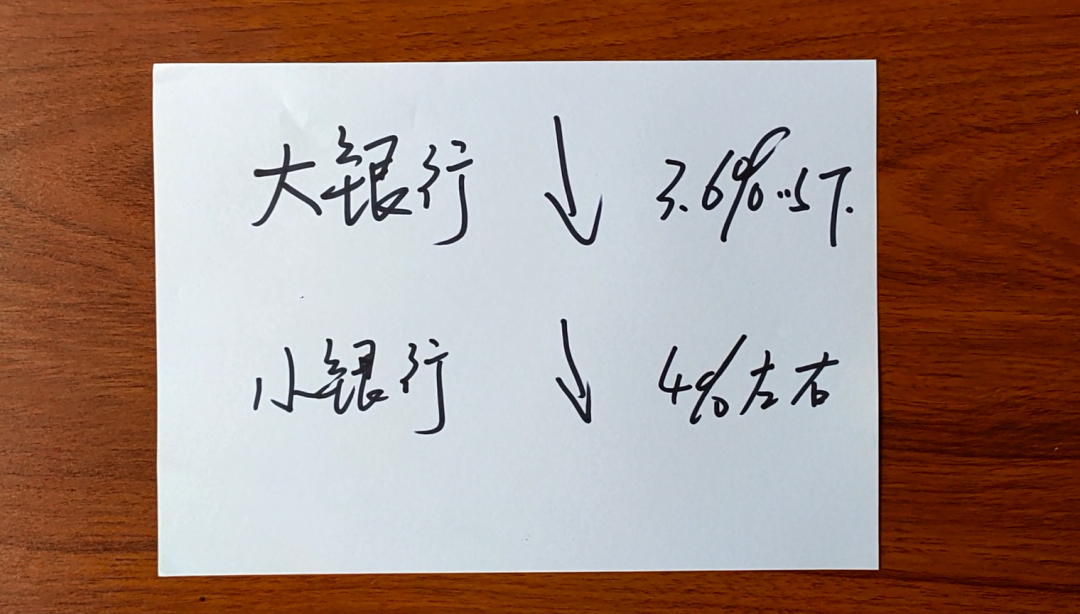 大银行 ↓ 3.6%以下.
小银行 ↓ 4%左右